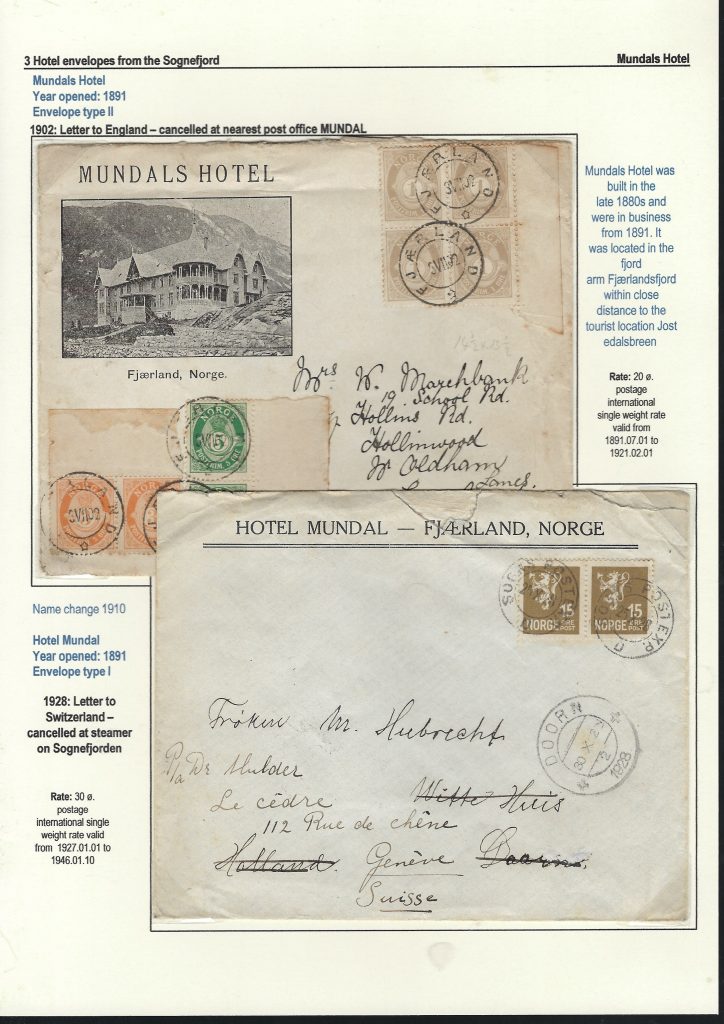 3 Hotel envelopes from the Sognefjord
Mundals Hotel
Mundals Hotel
Year opened: 1891
Envelope type II
1902: Letter to England – cancelled at nearest post office MUNDAL
MUNDALS HOTEL
Fjærland, Norge.
FJÆRLAND
3VII02
FJÆRLAND
3VII02
Mrs W. Marchbank
19. School Rd.
Hollins Rd.
Hollinwood
Nr Oldham
Lancs.
NORG
5
LAND
3VII02
Mundals Hotel was
built in the
late 1880s and
were in business
from 1891. It
was located in the
fjord
arm Fjærlandsfjord
within close
distance to the
tourist location Jost
edalsbreen
Rate: 20 ø.
postage
international
single weight rate
valid from
1891.07.01 to
1921.02.01
Name change 1910
Hotel Mundal
Year opened: 1891
Envelope type I
1928: Letter to
Switzerland –
cancelled at steamer
on Sognefjorden
Rate: 30 ø.
postage
international single
weight rate valid
from 1927.01.01 to
1946.01.10
HOTEL MUNDAL — FJÆRLAND, NORGE
15
NORGE ØRE POST
15
NORGE ØRE POST
POSTEXP.
DOORN
30 X
1928
Frøken M. Hubrecht
P/a Dr Mulder
Le cèdre Witte Huis
112 Rue de chêne
Holland. Genève Doorn.
Suisse